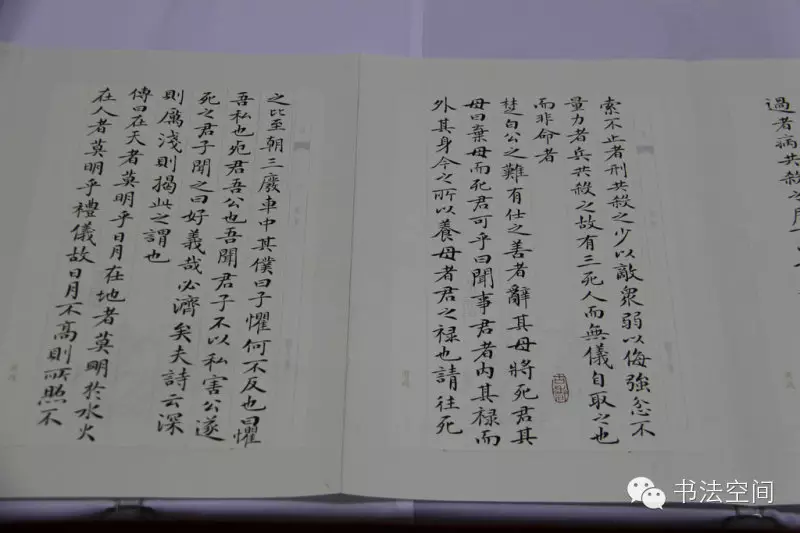 過者病共殺之
索不止者刑共殺之少以敵衆弱以侮強忿不
量力者兵共殺之故有三死人而無儀自取之也
而非命者
楚白公之難有仕之善者辭其母將死君其
母曰棄母而死君可乎曰聞事君者内其禄而
外其身今之所以養母者君之禄也請往死
之比至朝三廢車中其僕曰子懼何不反也曰懼
吾私也死君吾公也吾聞君子不以私害公遂
死之君子聞之曰好義哉必濟矣夫詩云深
則厲淺則揭此之謂也
傳曰在天者莫明乎日月在地者莫明於水火
在人者莫明乎禮儀故日月不高則所照不
书法空间